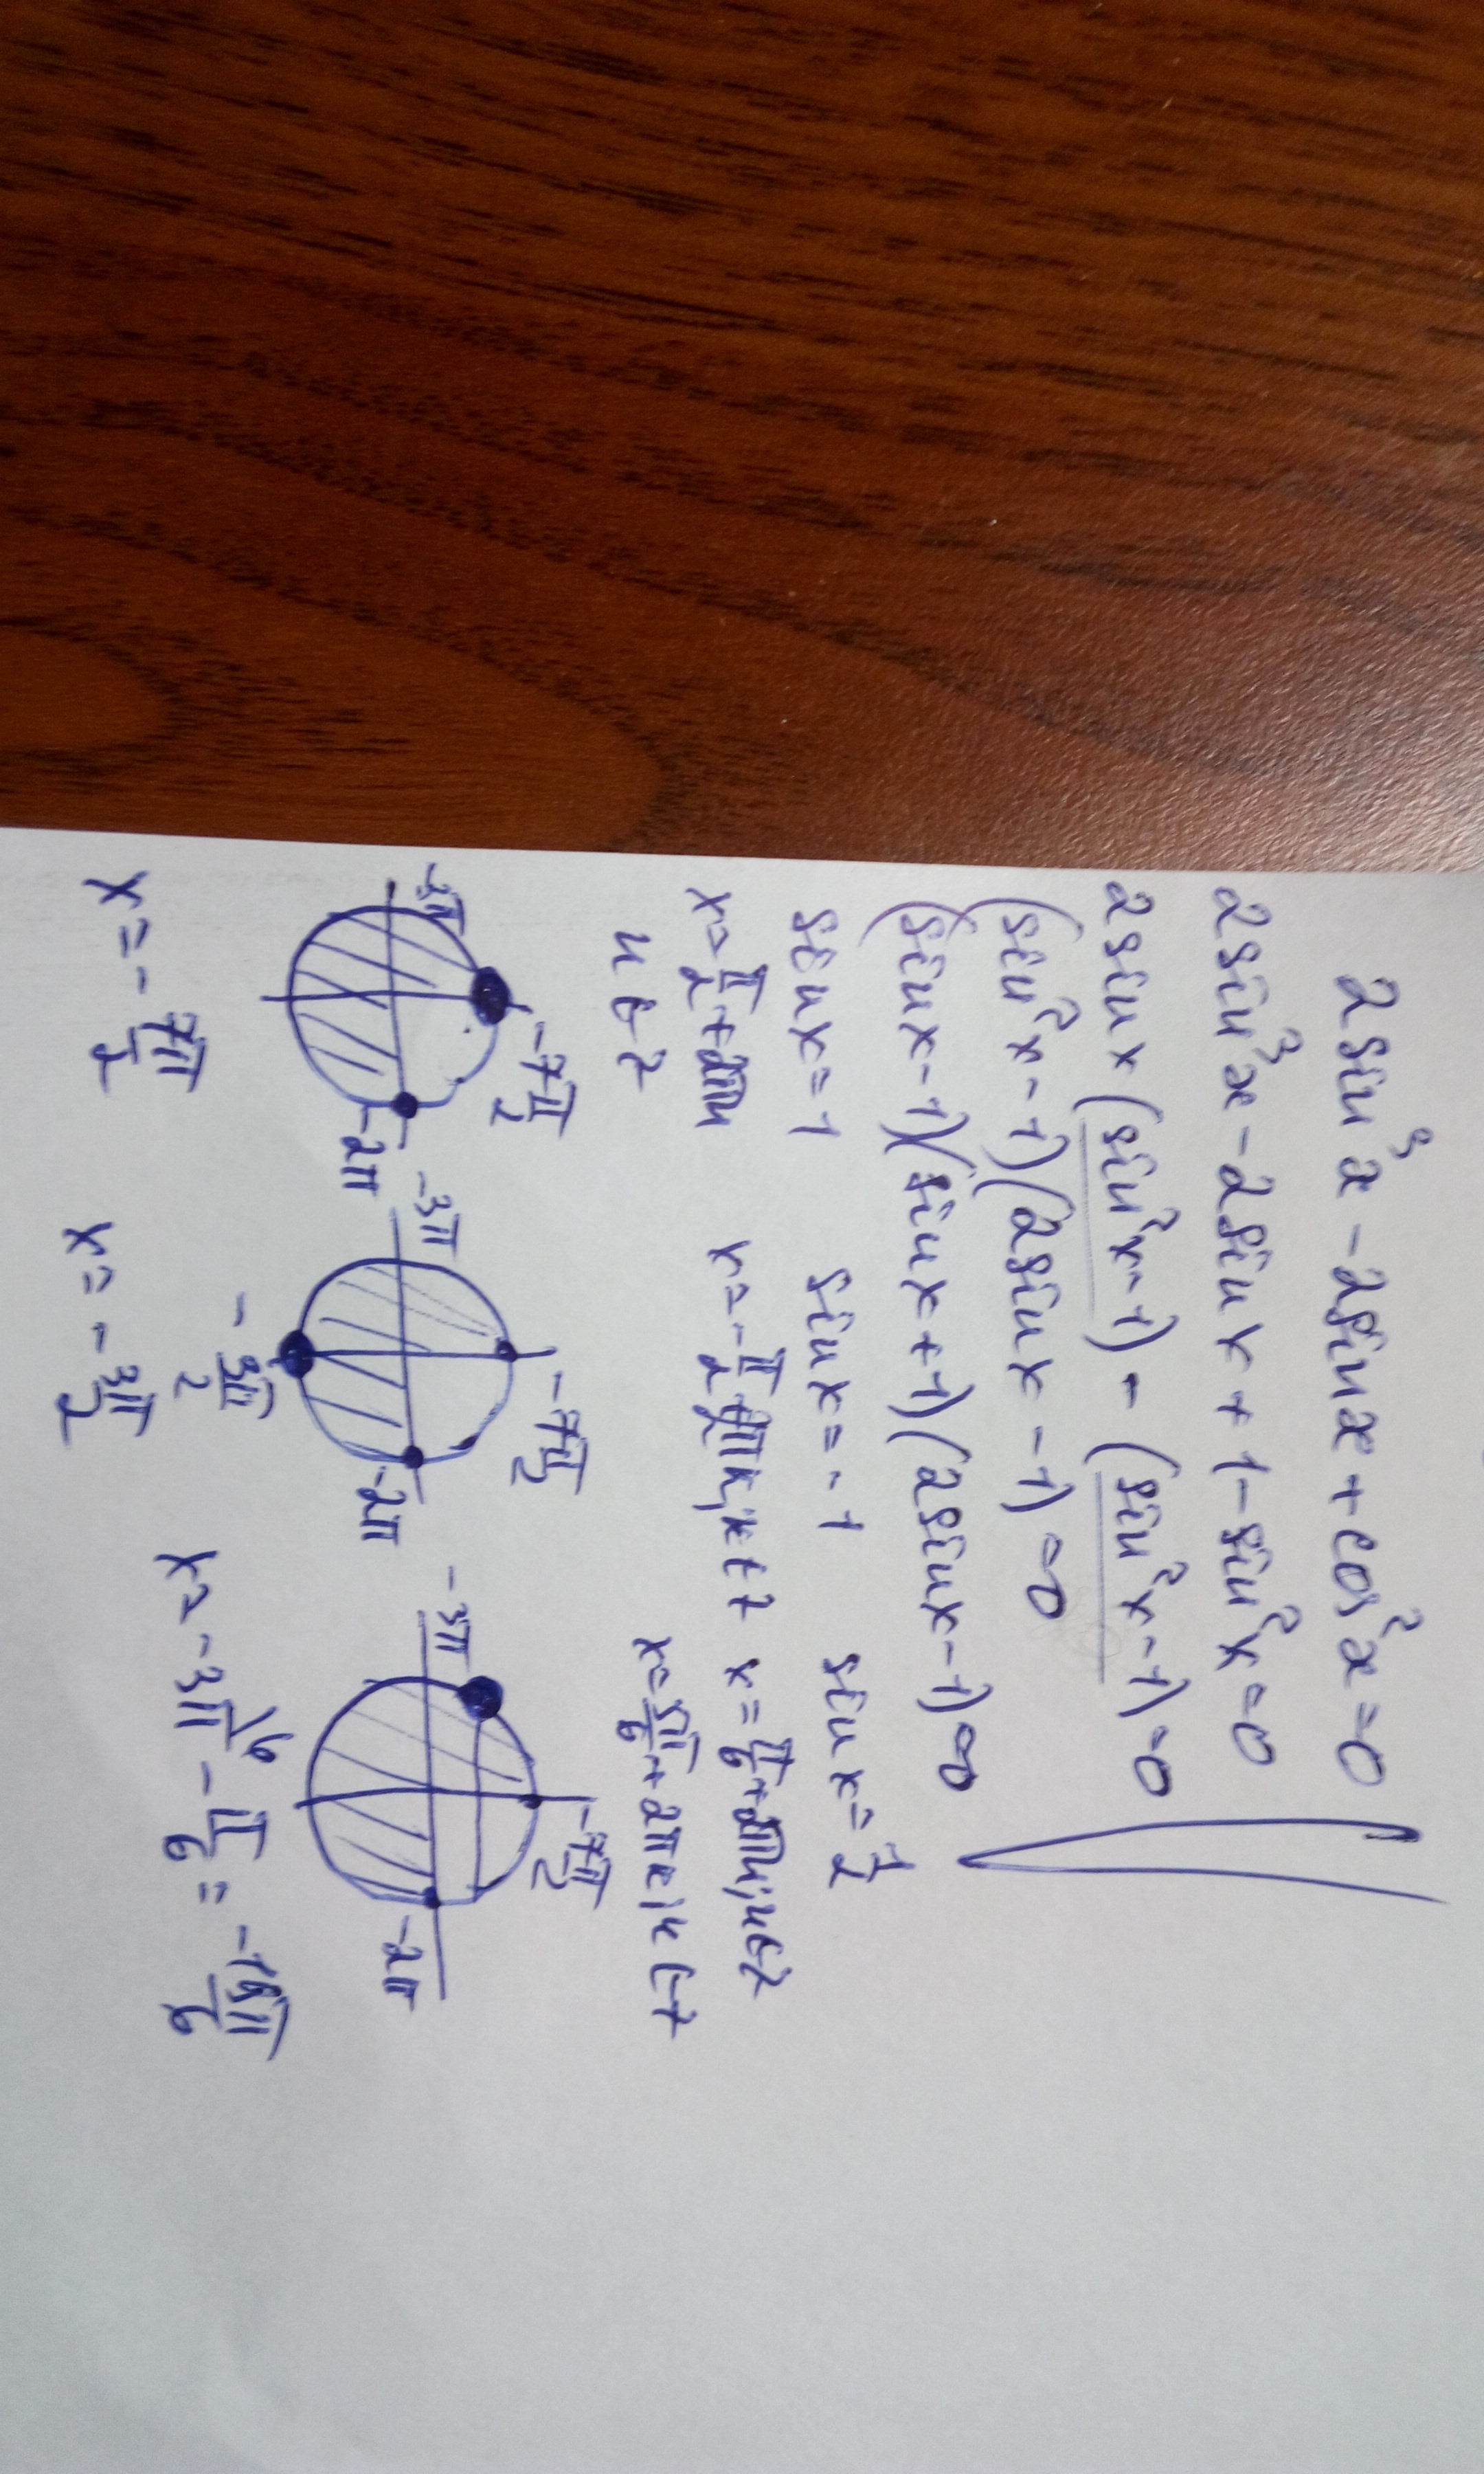 2 sin³x - 2sinx + cos²x = 0
2sin³x - 2sinx + 1 - sin²x = 0
2 sinx (sin²x - 1) - (sin²x - 1) = 0
(sin²x - 1)(2sinx - 1) = 0
(sinx - 1)(sinx + 1)(2sinx - 1) = 0
sinx = 1 sinx = -1 sinx = 1/2
x = π/2 + 2πn x = -π/2 + 2πn; n ∈ Z x = π/6 + 2πn; n ∈ Z
n ∈ Z x = 5π/6 + 2πn; n ∈ Z
-7π/2 -7π/2 -7π/2
-3π -2π -3π -2π -3π -2π
-3π/2
x = -7π/2 x = -3π/2 x = -3π\6 - π/6 = -19π/6